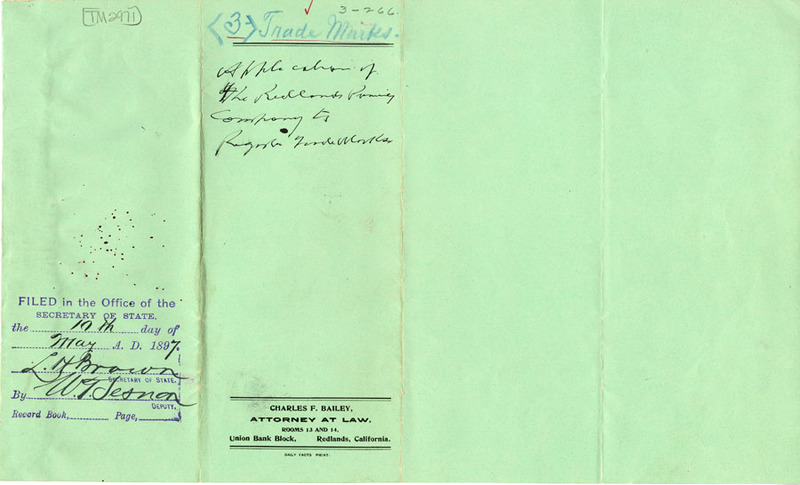 TM2971
3-266.
<3-> Trade Marks.
Application of
the Redlands
Company to
Register Trade Marks
FILED in the Office of the
SECRETARY OF STATE,
the 19th day of
May A. D. 1897.
L. H. Brown
SECRETARY OF STATE.
By W. T. Sesnon
DEPUTY.
Record Book, Page,
CHARLES F. BAILEY,
ATTORNEY AT LAW.
ROOMS 13 AND 14,
Union Bank Block, Redlands, California.
DAILY FACTS PRINT.